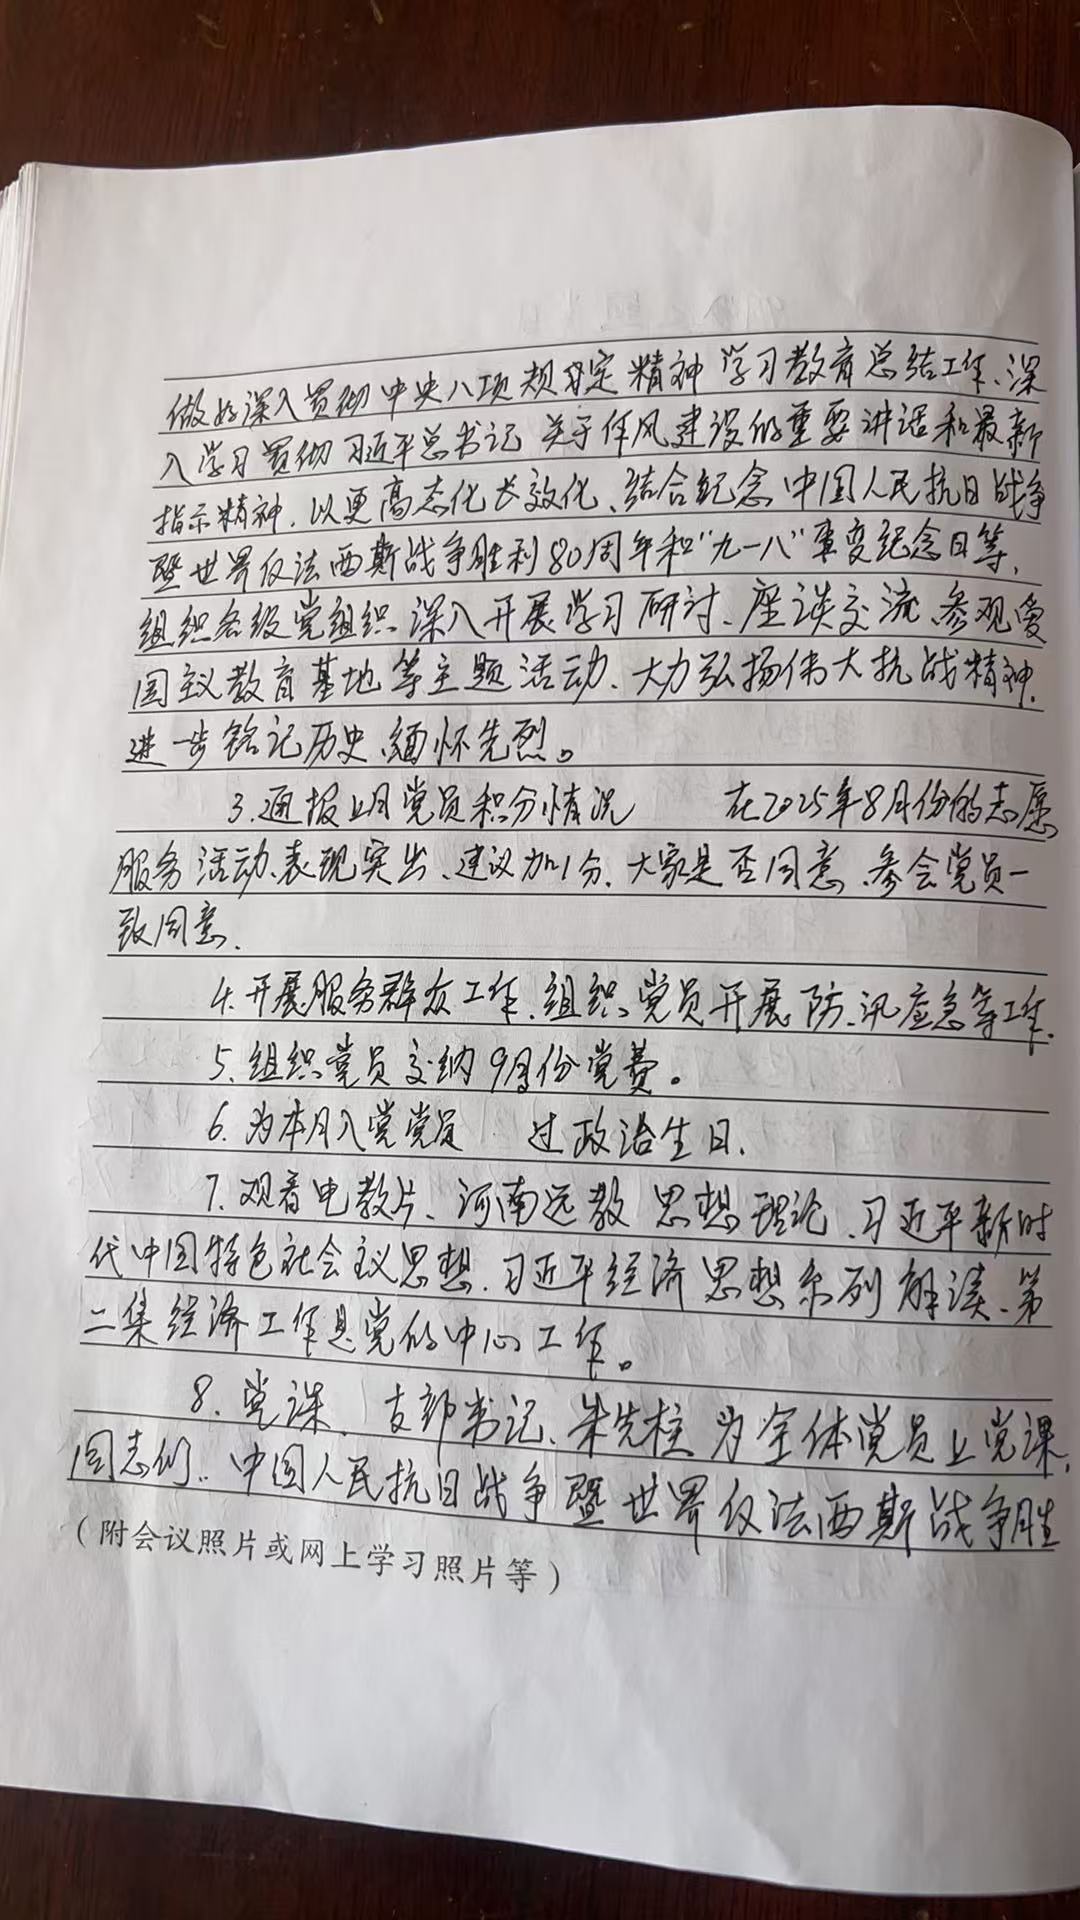 做好深入贯彻中央八项规定精神学习教育总结工作、深
入学习贯彻习近平总书记关于作风建设的重要讲话和最新
指示精神、以更高态化长效化、结合纪念中国人民抗日战争
暨世界反法西斯战争胜利80周年和“九一八”事变纪念日等、
组织各级党组织深入开展学习研讨、座谈交流、参观爱
国主义教育基地等主题活动、大力弘扬伟大抗战精神、
进一步铭记历史、缅怀先烈。
3.通报上月党员积分情况 在2025年8月份的志愿
服务活动、表现突出、建议加1分、大家是否同意、参会党员一
致同意、
4.开展服务群众工作、组织党员开展防汛应急等工作、
5、组织党员交纳9月份党费。
6、为本月入党党员 过政治生日、
7、观看电教片、河南远教思想理论、习近平新时
代中国特色社会主义思想、习近平经济思想系列解读、第
二集经济工作是党的中心工作。
8、党课、支部书记、朱先柱为全体党员上党课、
同志们：中国人民抗日战争暨世界反法西斯战争胜
（附会议照片或网上学习照片等）